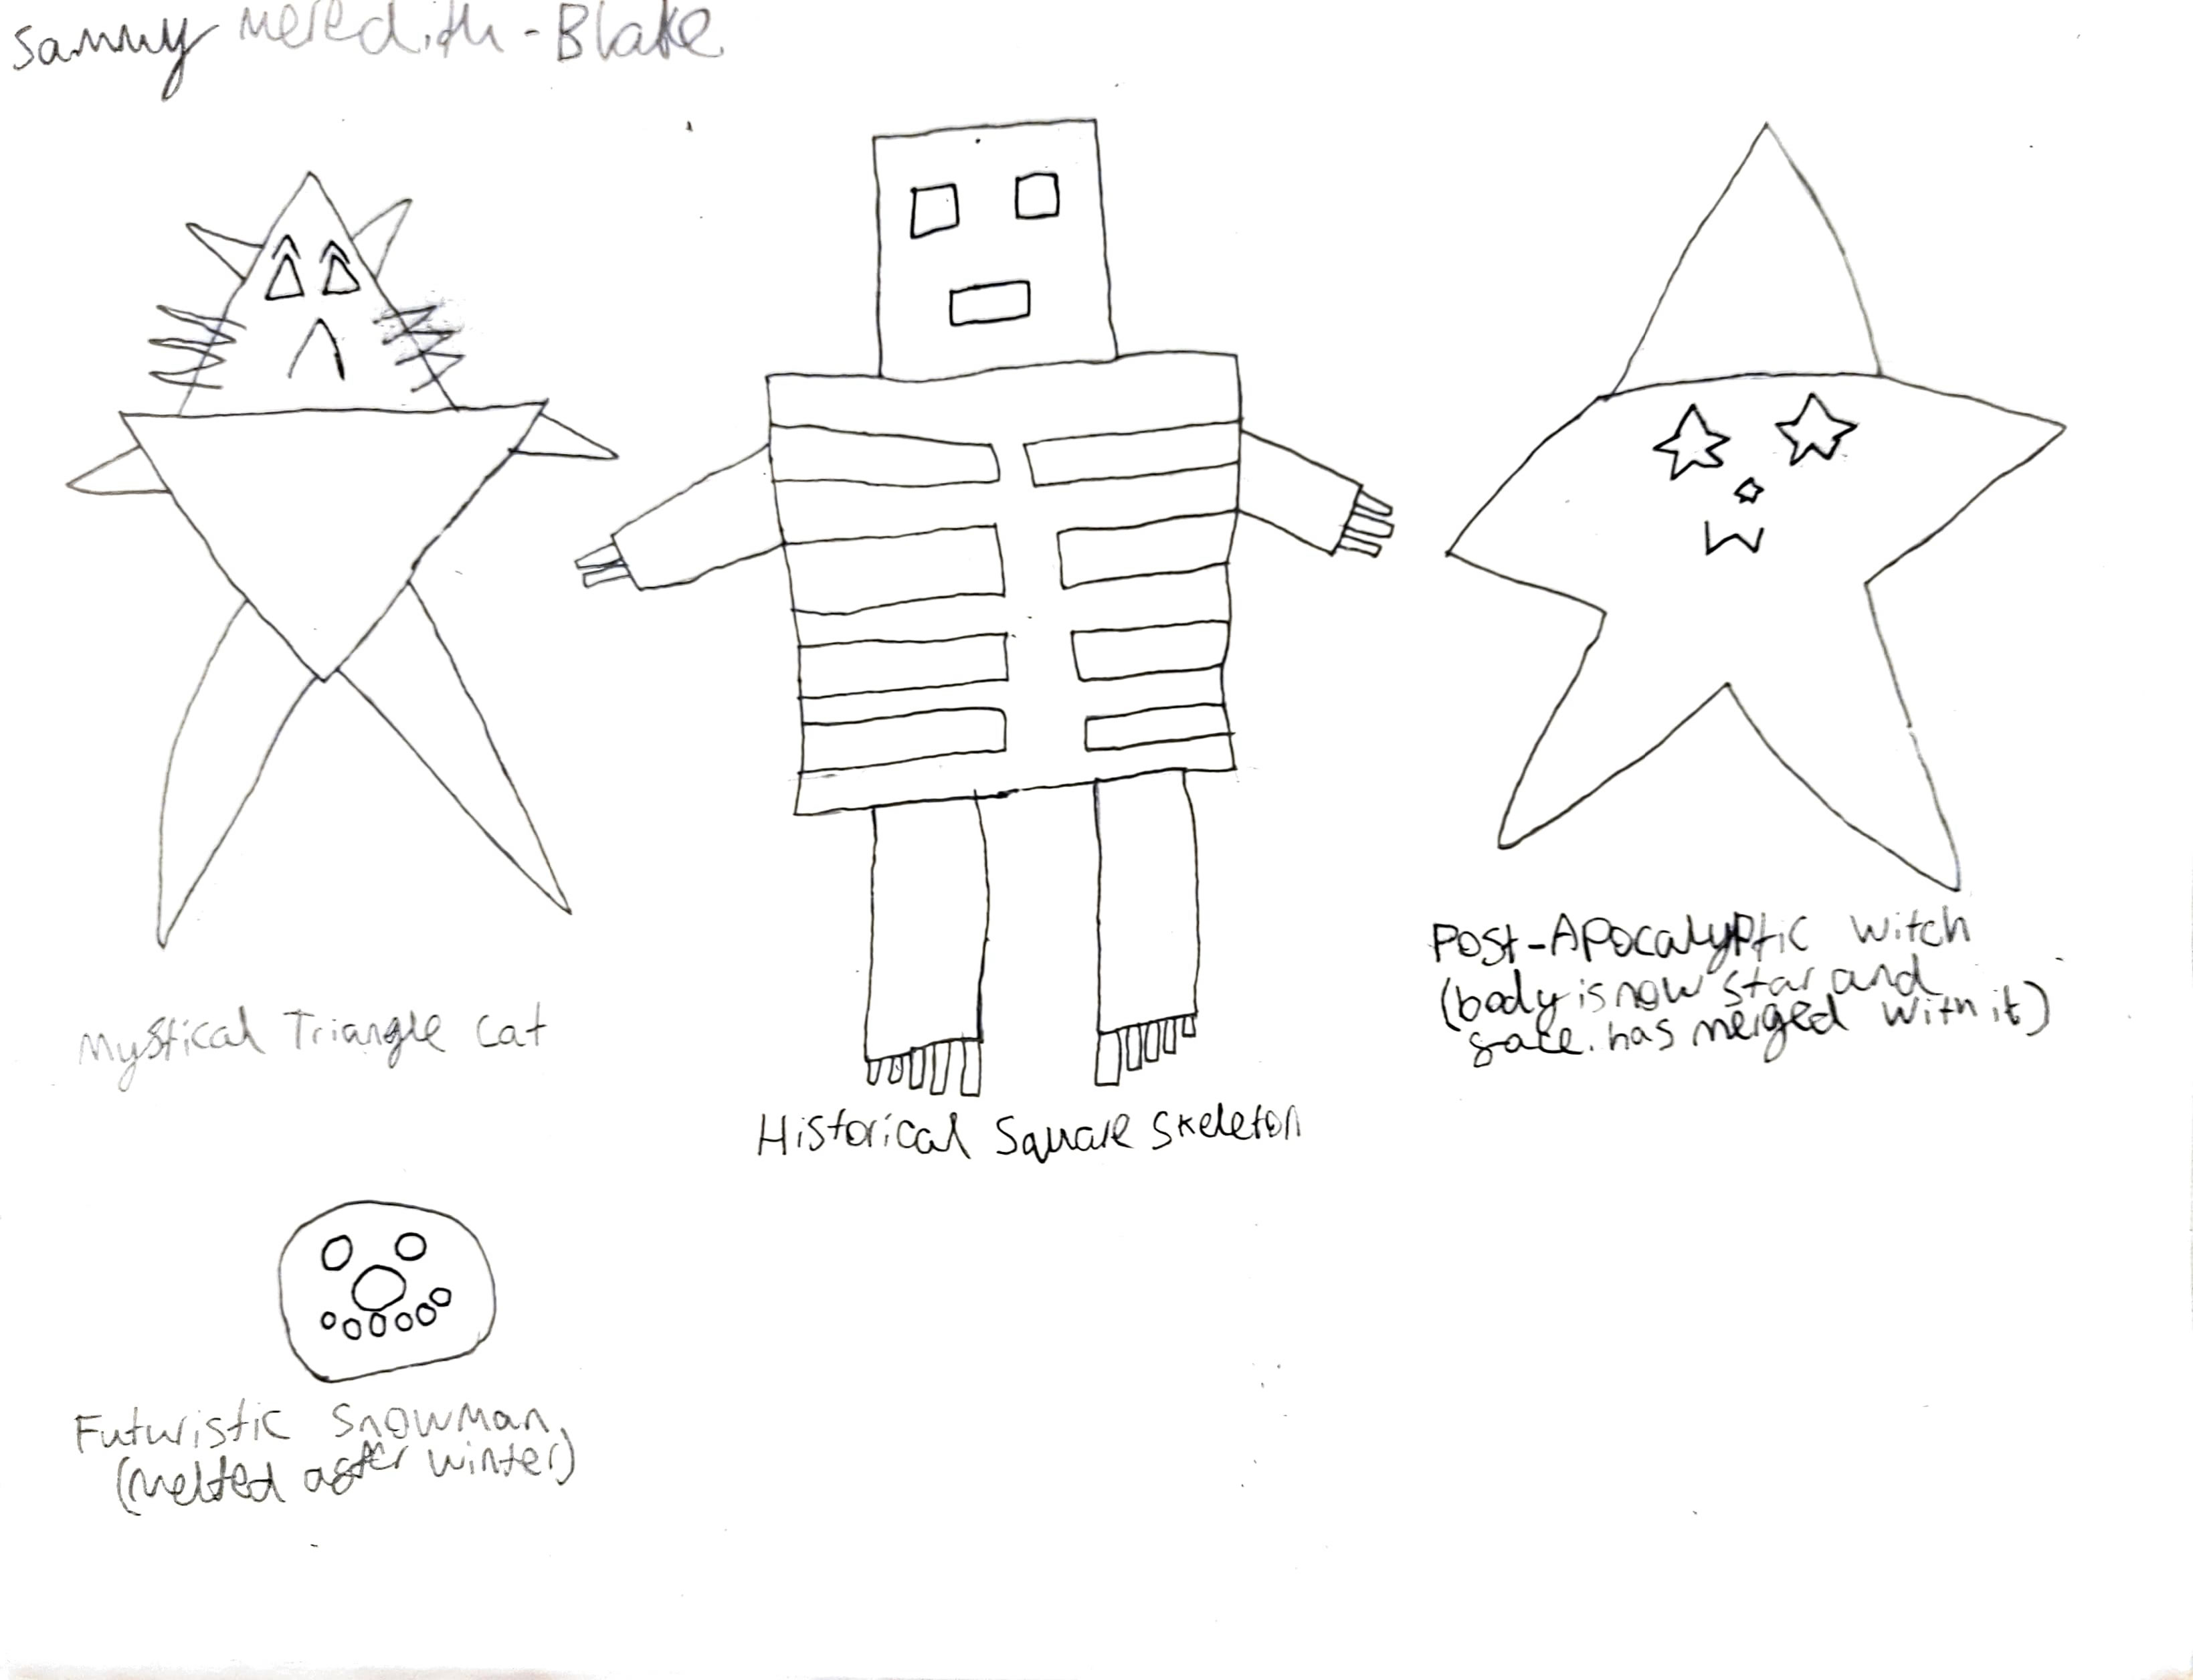 Sammy Meredith-Blake
Mystical Triangle Cat
Historical Square Skeleton
Post-Apocalyptic Witch
(body is now star and
face has merged with it)
Futuristic Snowman
(Melted after winter)